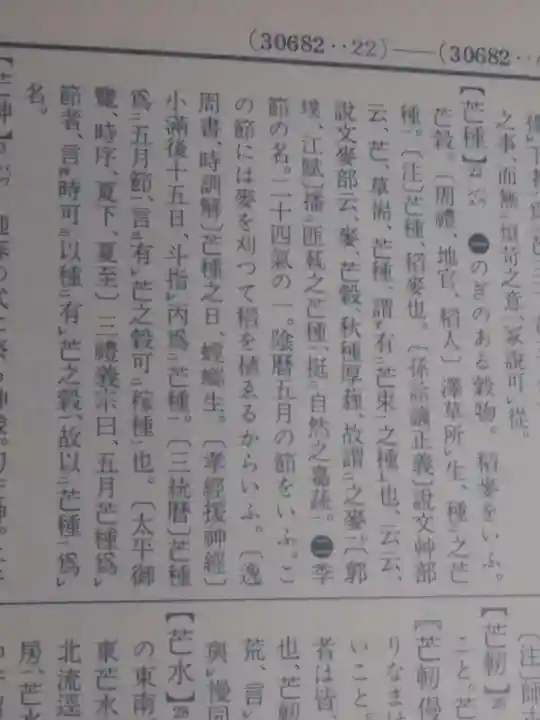 (30682‥22)——(30682‥
之事、而無煩苛之意、冢說可從。
【芒種】 ㊀のぎのある穀物。稻麥をいふ。
芒穀。〔周禮、地官、稻人〕澤草所生、種之芒
種。〔注〕芒種、稻麥也。〔孫詒讓正義〕說文艸部
云、芒、草耑、芒種、謂有芒朿之種也、云云、
說文麥部云、麥、芒穀、秋種厚薶、故謂之麥。〔郭
璞、江賦〕播匪蓺之芒種、挺自然之嘉蔬。㊁季
節の名。二十四氣の一。陰曆五月の節をいふ。こ
の節には麥を刈つて稻を植ゑるからいふ。〔逸
周書、時訓解〕芒種之日、螳螂生。〔孝經援神經〕
小滿後十五日、斗指丙爲芒種。〔三統曆〕芒種
爲五月節、言有芒之穀可稼種也。〔太平御
覽、時序、夏下、夏至〕三禮義宗曰、五月芒種爲
節者、言時可以種有芒之穀、故以芒種爲
名。
【芒神】
【芒軔】
こと。芒
【芒軔僈
りなま
いこと
者は皆、
也、芒軔
荒、言
與慢同
【芒水】
の東南
東芒水
北流逕
房、芒水